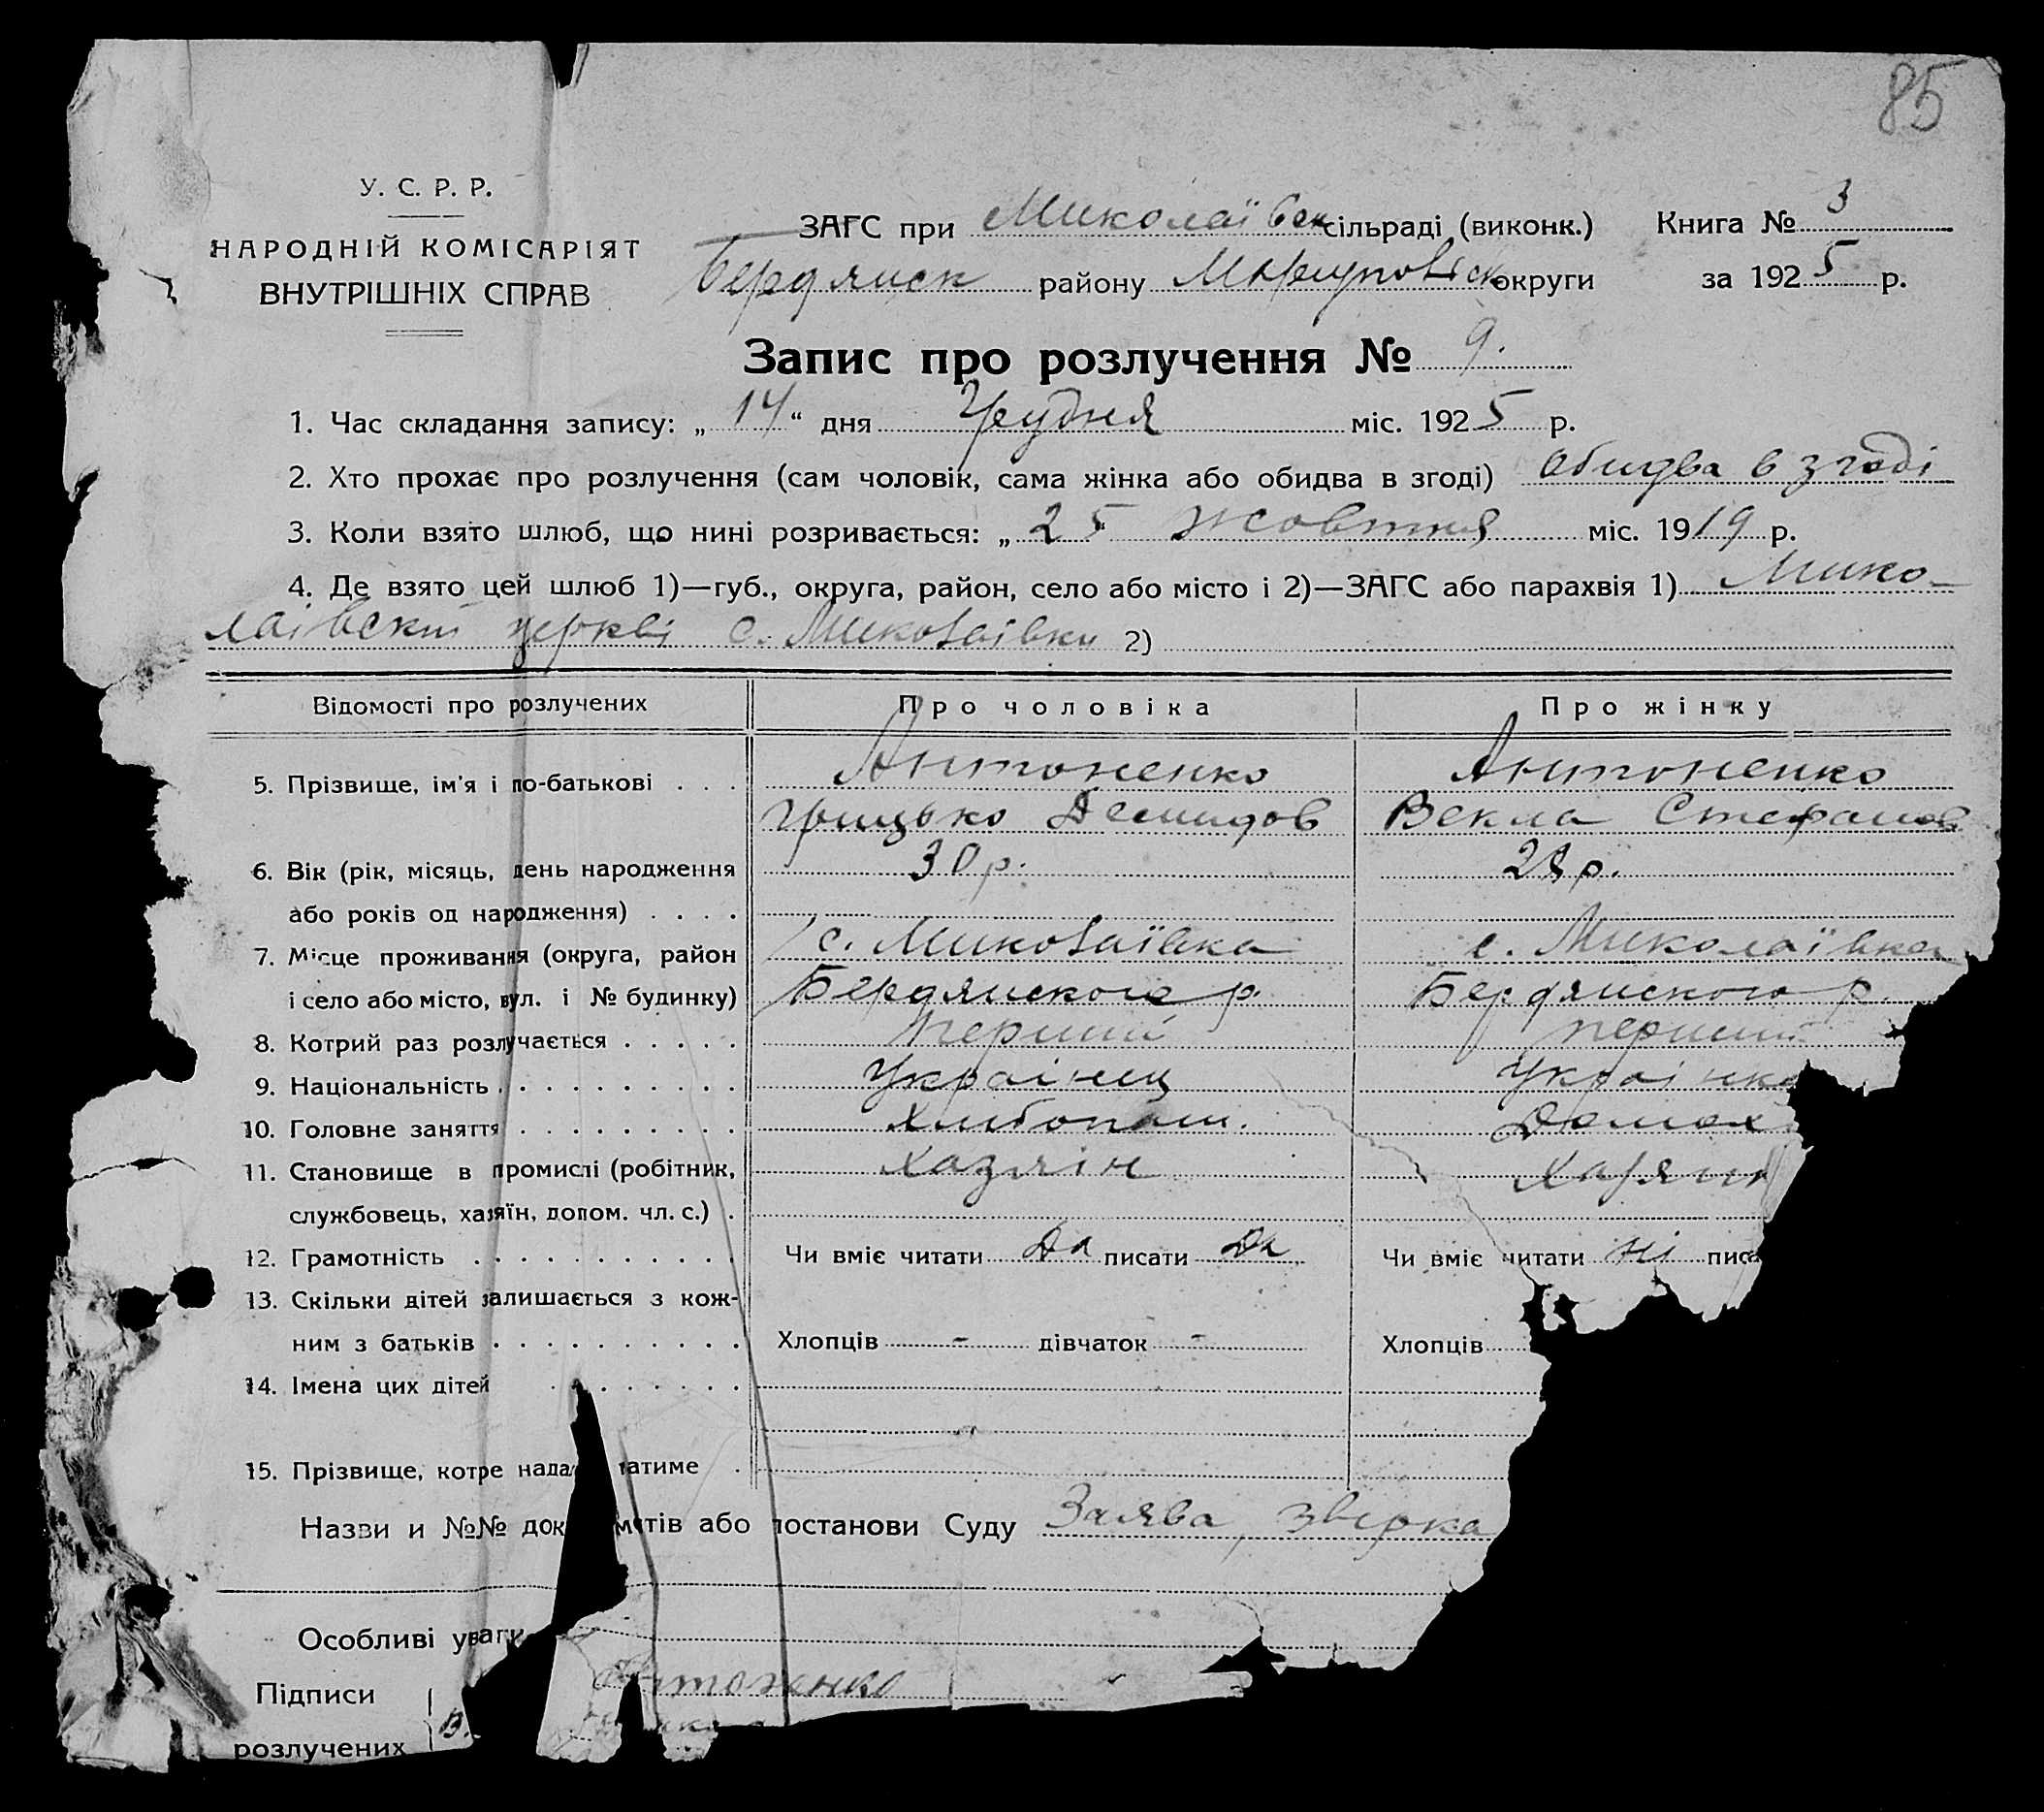 85
У. С. Р. Р.
НАРОДНІЙ КОМІСАРІЯТ
ВНУТРІШНІХ СПРАВ
ЗАГС при Миколаївск сільраді (виконк.) Книга № 3
Бердянск району Маріупольск округи за 1925 р.
Запис про розлучення № 9.
1. Час складання запису: „14“ дня Грудня міс. 1925 р.
2. Хто прохає про розлучення (сам чоловік, сама жінка або обидва в згоді) Обидва в згоді
3. Коли взято шлюб, що нині розривається: „25 жовтня міс. 1919 р.
4. Де взято цей шлюб 1)—губ., округа, район, село або місто і 2)—ЗАГС або парахвія 1) Мико-
лаівскій церкві с. Миколаівки 2)
Відомості про розлучених Про чоловіка Про жінку
5. Прізвище, ім'я і по-батькові . . . Антоненко Антоненко
Грицько Демидов Векла Стефанов
6. Вік (рік, місяць, день народження 30 р. 28 р.
або років од народження) . . . .
7. Місце проживання (округа, район с. Миколаївка с. Миколаївка
і село або місто, вул. і № будинку) Бердянского р. Бердянского р.
8. Котрий раз розлучається . . . . . перший перший
9. Національність . . . . . . . . . . Українец Українка
10. Головне заняття . . . . . . . . . Хлібопаш. Домах
11. Становище в промислі (робітник, Хазяін Хазяін
службовець, хазяїн, допом. чл. с.) .
12. Грамотність . . . . . . . . . . . Чи вміє читати Да писати Да Чи вміє читати Ні писа
13. Скільки дітей залишається з кож-
ним з батьків . . . . . . . . . . Хлопців - дівчаток - Хлопців
14. Імена цих дітей . . . . . . .
15. Прізвище, котре нада атиме .
Назви и №№ док ментів або постанови Суду Заява, звірка
Особливі уваги
Підписи Антоненко
розлучених В.